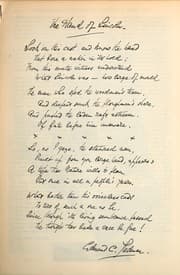 The Hand of Lincoln.
Look on this cast, and know the hand
That bore a nation in its hold:
From this mute witness understand
What Lincoln was — how large of mould
The man who sped the woodman's team,
And deepest sunk the ploughman's share,
And pushed the laden raft astream,
Of fate before him unaware.
Lo, as I gaze, the statured man,
Built up from yon large hand, appears:
A type that Nature wills to plan
But once in all a people's years.
What better than this voiceless cast
To tell of such a one as he,
Since through its living semblance passed
The thought that bade a race be free!
Edmund C. Stedman